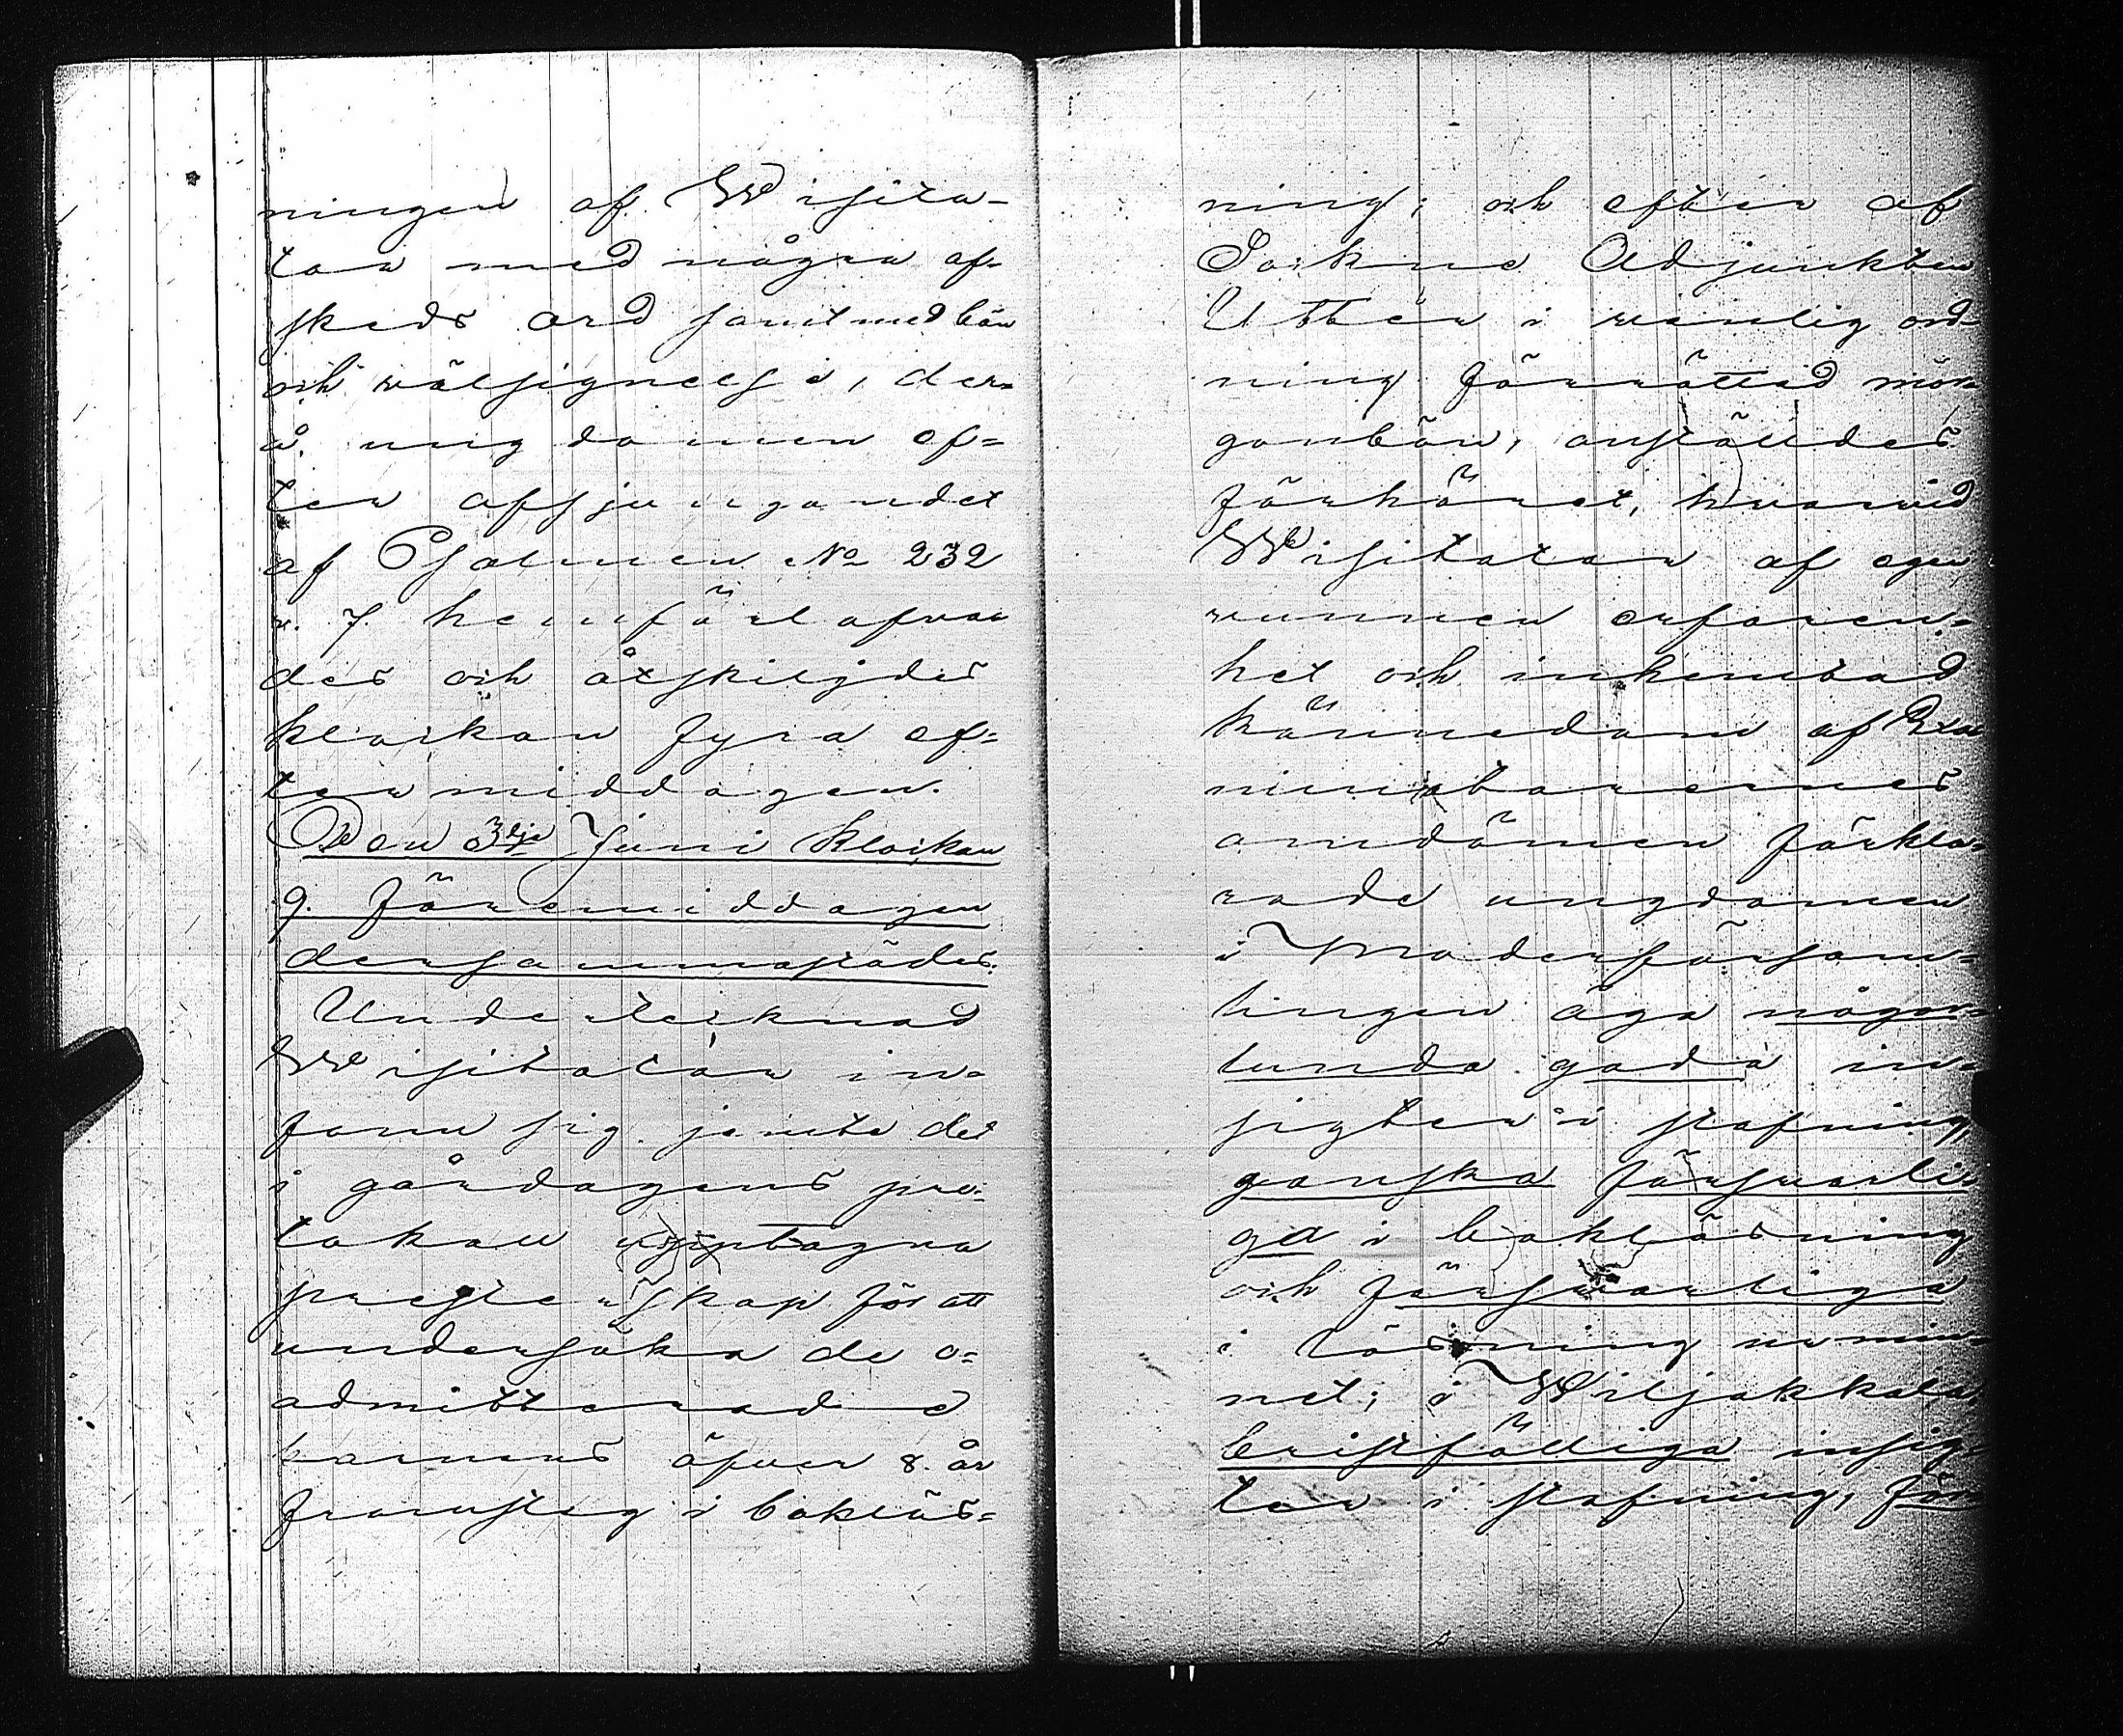 ningen af Wisita-
tor med några af-
skeds ord samt med bön
och wälsignelse, der-
å ungdomen ef=
ter afsjungandet
af Psalmen No 232
v. 7. hemförlofva-
des och åtskiljdes
klockan fyra ef=
termiddagen.
Den 3dje Juni klockan
9. föremiddagen
dersammastädes.
Undertecknad
Wisitator in-
fann sig jemte det
i gårdagens pro-
tokoll upptagna
presterskap för att
undersöka de o=
admitterade
barnens öfver 8. år
framsteg i bokläs=
ning; och efter af
Sockne Adjunkten
Uttér i vanlig ord-
ning förrättad mor-
gonbön, anställdes
förhöret, hvarvid
Wisitator af egen
vunnen erfaren-
het och inhemtad
kännedom af Exa
minatorernes
omdömen förkla-
rade ungdomen
i Moderförsam-
lingen äga någor-
lunda goda in-
sigter i stafning
ganska försvarli-
ga i bokläsning
och försvarliga
i läsning ur min-
net; i Wiljakkala
bristfälliga insig-
ter i stafning, för